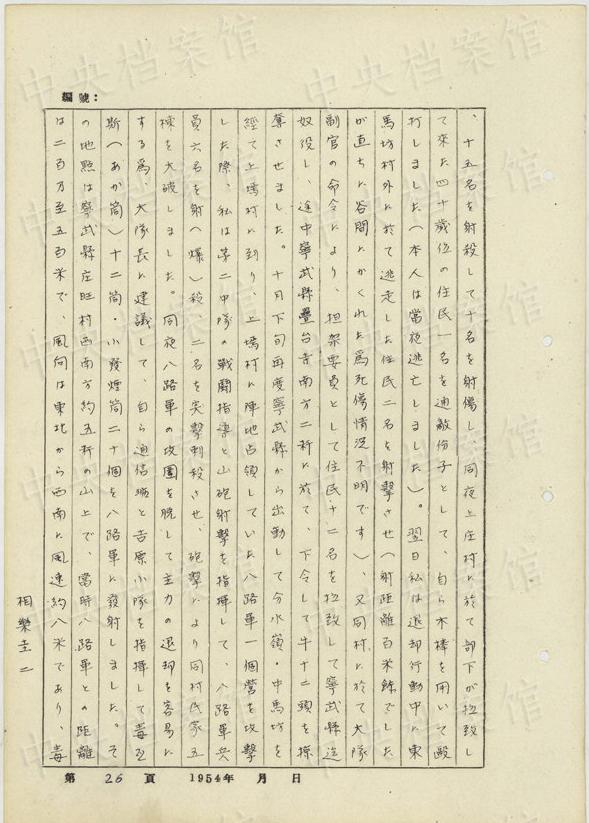 編號：
、十五名を射殺して十名を射傷し、同夜上庄村に於て部下が拉致し
て来た四十歳位の住民一名を通敵份子として、自ら木棒を用いて毆
打しました（本人は當夜逃亡しました）。翌日私は退却行動中に東
馬坊村外に於て逃走した住民二名を射撃させ（射距離百米餘でした
が直ちに谷間にかくれた為死傷情況不明です）、又同村に於て大隊
副官の命令により、担架要員として住民十二名を拉致して寧武縣迄
奴役し、途中寧武縣疊台寺南方二粁に於て、下令して牛十二頭を掠
奪させました。十月下旬再度寧武縣から出動して分水嶺・中馬坊を
経て上塲村に到り、上塲村に陣地占領していた八路軍一個營を攻撃
した際、私は第二中隊の戰闘指導と山砲射撃を指揮して、八路軍兵
員六名を射（爆）殺、二名を突撃刺殺させ、砲撃により同村民家五
棟を大破しました。同夜八路軍の攻圍を脱して主力の退却を容易に
する為、大隊長に建議して、自ら通信班と吉原小隊を指揮して毒瓦
斯（あか筒）十二筒・小發煙筒二十個を八路軍に發射しました。そ
の地點は寧武縣庄旺村西南方約五粁の山上で、當時八路軍との距離
は二百乃至五百米で、風向は東北から西南に風速約八米であり、毒
相樂圭二
第 26 頁 1954年 月 日
中央档案馆